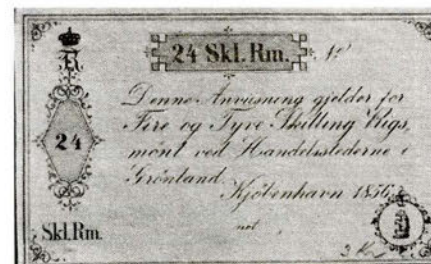 24 Skl. Rm. №
Denne Anviisning gjelder for
Fire og Tyve Skilling Rigs,
mönt ved Handelsstederne i
Grönland.
Kjöbenhavn 1856.
24
not
Skl. Rm.